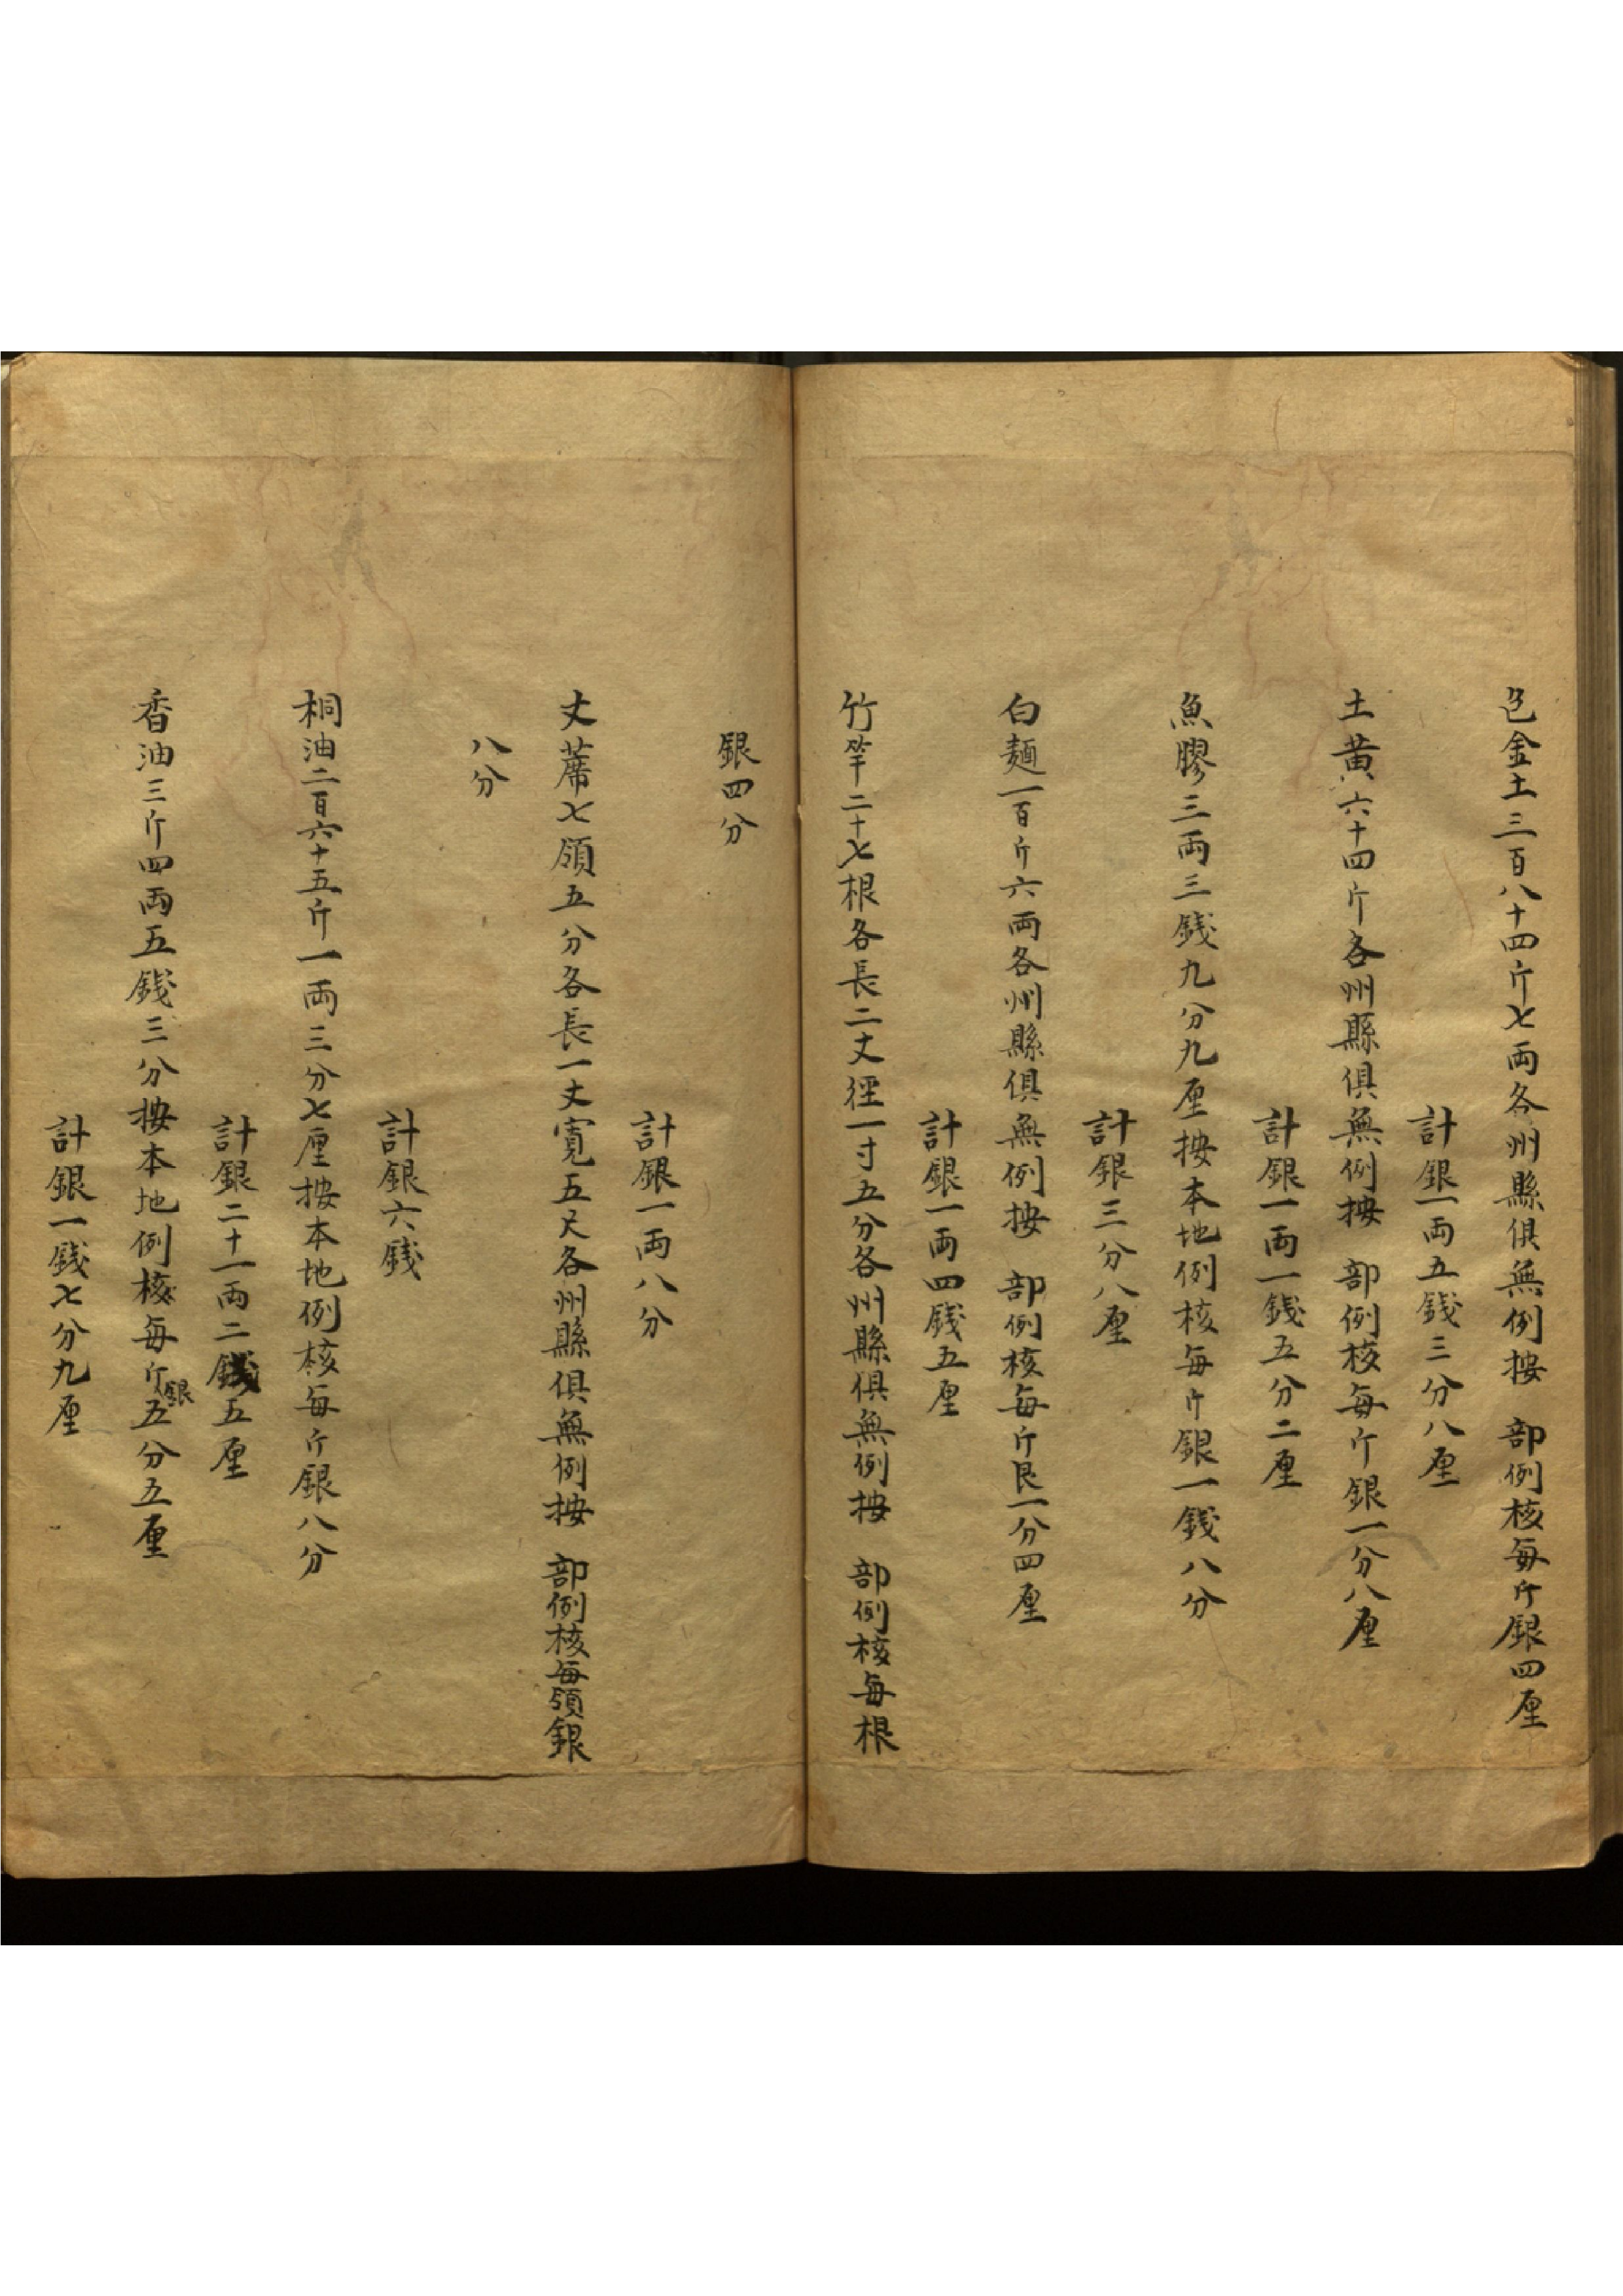 色金土三百八十四斤七両各州縣俱無例按　部例核每斤銀四厘
計銀一両五錢三分八厘
土黃六十四斤各州縣俱無例按　部例核每斤銀一分八厘
計銀一両一錢五分二厘
魚膠三両三錢九分九厘按本地例核每斤銀一錢八分
計銀三分八厘
白麺一百斤六両各州縣俱無例按　部例核每斤艮一分四厘
計銀一両四錢五厘
竹竿二十七根各長二丈徑一寸五分各州縣俱無例按　部例核每根
銀四分
計銀一両八分
丈蓆七領五分各長一丈寬五尺各州縣俱無例按　部例核每領銀
八分
計銀六錢
桐油二百六十五斤一両三分七厘按本地例核每斤銀八分
計銀二十一両二錢五厘
香油三斤四両五錢三分按本地例核每斤銀五分五厘
計銀一錢七分九厘